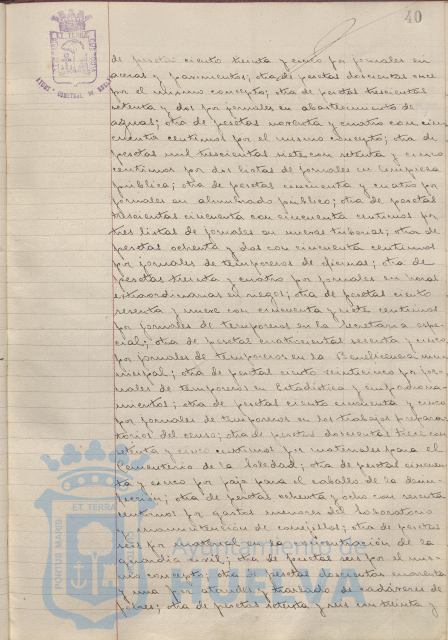 40
de pesetas ciento treinta y cinco por jornales en
aceras y pavimentos; otra de pesetas doscientas once
por el mismo concepto; otra de pesetas trescientas
setenta y dos por jornales en abastecimiento de
aguas; otra de pesetas noventa y cuatro con cin
cuenta centimos por el mismo concepto; otra de
pesetas mil trescientas siete con setenta y cinco
centimos por dos listas de jornales en limpieza
pública; otra de pesetas cincuenta y cuatro por
jornales en alumbrado público; otra de pesetas
trescientas cincuenta con cincuenta centimos por
tres listas de jornales en nuevas tuberias; otra de
pesetas ochenta y dos con cincuenta centimos
por jornales de temporeros de oficinas; otra de
pesetas treinta y cuatro por jornales en horas
extraordinarias en riegos; otra de pesetas ciento
sesenta y nueve con cincuenta y siete centimos
por jornales de temporeros en la Secretaria espe
cial; otra de pesetas cuatrocientas sesenta y cinco
por jornales de temporeros en la Beneficencia mu
nicipal; otra de pesetas ciento veinticinco por jor
nales de temporeros en Estadistica y empadrona
mientos; otra de pesetas ciento cincuenta y cinco
por jornales de temporeros en los trabajos prepara
torios del censo; otra de pesetas doscientas trece con
setenta y cinco centimos por materiales para el
Cementerio de la Soledad; otra de pesetas cincuen
ta y cinco por paja para el caballo de la
otra de pesetas ochenta y ocho con sesenta
centimos por gastos menores del Laboratorio
y manutención de conejillos; otra de pesetas
seis por material en la concentración de la
guardia civil; otra de pesetas seis por el mis
mo concepto; otra de pesetas doscientas cuarenta
y una por ataudes y traslado de cadáveres de
pobres; otra de pesetas setenta y seis con treinta y
ET TERRA
PORTUS MARIS
Ayuntamiento de
HUELVA